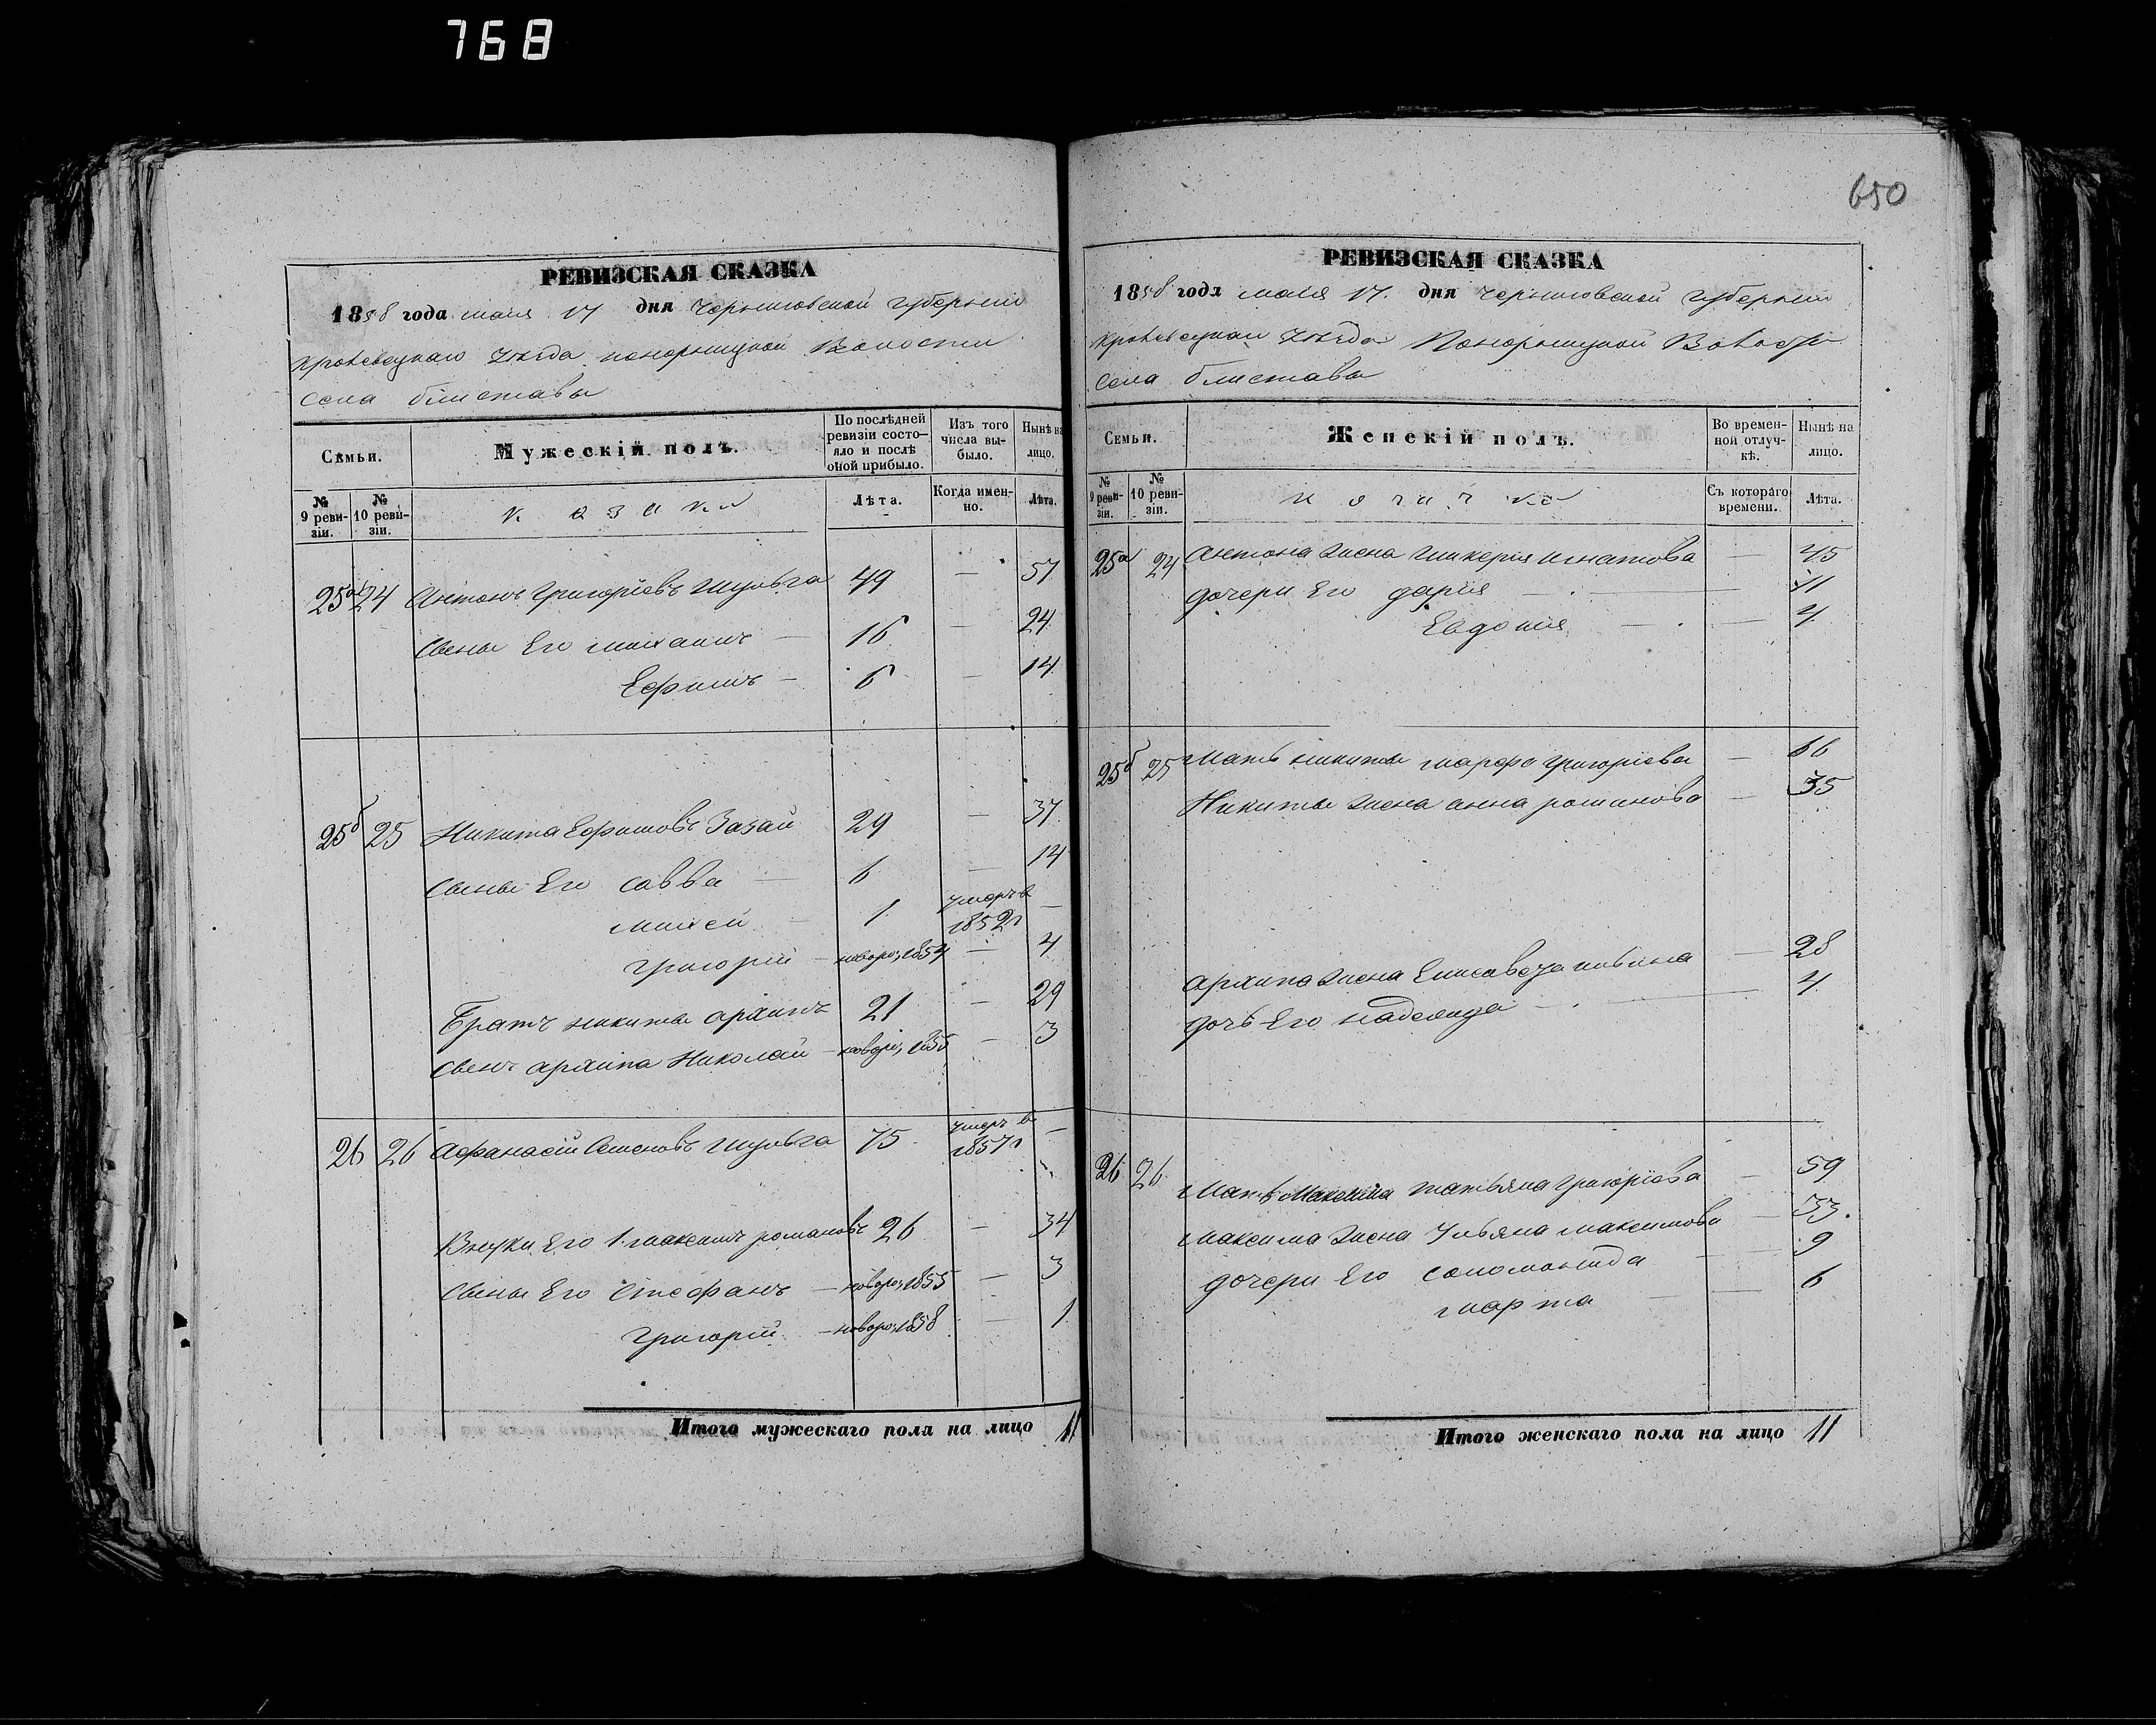 768
650
РЕВИЗСКАЯ СКАЗКА
1858 года маія 17 дня Черниговской губерніи
Кролевецкаго уѣзда понорницкой Волости
села блиставы
Семьи.
Мужескій полъ.
По послѣдней ревизіи состояло и послѣ оной прибыло.
Изъ того числа выбыло.
Нынѣ на лицо.
№ 9 ревизіи.
№ 10 ревизіи.
казаки
Лѣта.
Когда именно.
Лѣта.
25а 24 Антонъ Григоріевъ Шульга 49 — 57
Сыны Его михаилъ — 16 — 24
Ефимъ — 6 — 14
25б 25 Никита Ефимовъ Зазай 29 — 37
Сыны Его савва — 6 — 14
мисей — 1 умеръ в 1852 г —
григорій — новоро, 1854 — 4
Братъ никиты архипъ 21 — 29
Сынъ архипа Николай — новоро, 1855 — 3
26 26 Афанасій Семеновъ шульга 75 умеръ в 1857 г —
Внуки Его 1. максимъ романовъ 26 — 34
Сыны Его Стефанъ — новоро, 1855 — 3
григорій — новоро, 1858 — 1
Итого мужескаго пола на лицо 11
РЕВИЗСКАЯ СКАЗКА
1858 года маія 17. дня Черниговской губерніи
Кролевецкаго уѣзда Понорницкой Волости
села блиставы
Семьи.
Женскій полъ.
Во временной отлучкѣ.
Нынѣ на лицо.
№ 9 ревизіи.
№ 10 ревизіи.
Съ котораго времени.
Лѣта.
25а 24 Антона жена гликерія игнатова — 45
дочери Его дарія — 11
Евдокія — 4
25б 25 Мать никиты марфа григоріева — 66
Никиты жена анна романова — 35
архипа жена Елисавета — 28
дочь Его надежда — 4
26 26 Мать Максима татьяна григоріева — 59
максима жена Ульяна максимова — 33.
дочери Его соломонида — 9
марта — 6
Итого женскаго пола на лицо 11